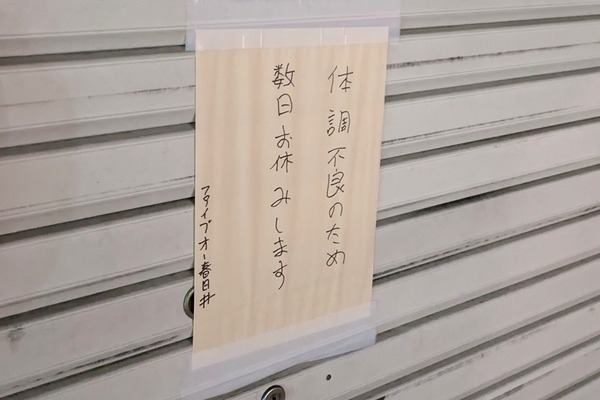 体調不良のため
数日お休みします
ファイブオー春日井